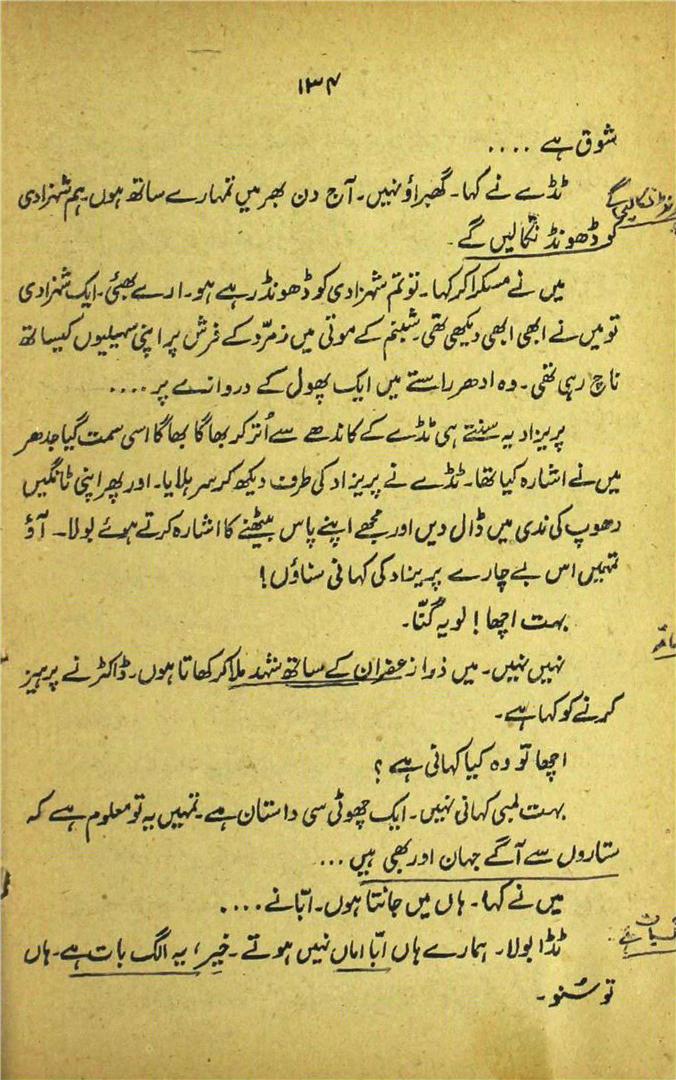 ۱۳۴
شوق ہے ....
ٹڈے نے کہا۔ گھبراؤ نہیں۔ آج دن بھر میں تمہارے ساتھ ہوں ہم شہزادی
کو ڈھونڈ نکالیں گے۔
میں نے مسکرا کر کہا۔ تو تم شہزادی کو ڈھونڈ رہے ہو۔ ارے بھئی۔ ایک شہزادی
تو میں نے ابھی ابھی دیکھی تھی۔ شبنم کے موتی میں زمرّد کے فرش پر اپنی سہیلیوں کیساتھ
ناچ رہی تھی۔ وہ ادھر راستے میں ایک پھول کے دروازے پر ....
پریزاد یہ سنتے ہی ٹڈے کے کاندھے سے اُتر کر بھاگا بھاگا اسی سمت گیا جدھر
میں نے اشارہ کیا تھا۔ ٹڈے نے پریزاد کی طرف دیکھ کر سر ہلایا۔ اور پھر اپنی ٹانگیں
دھوپ کی ندی میں ڈال دیں اور مجھے اپنے پاس بیٹھنے کا اشارہ کرتے ہوئے بولا۔ آؤ
تمہیں اس بے چارے پریزاد کی کہانی سناؤں!
بہت اچھا! لو یہ گنّا۔
نہیں نہیں۔ میں ذرا زعفران کے ساتھ شہد ملا کر کھاتا ہوں۔ ڈاکٹر نے پرہیز
کرنے کو کہا ہے۔
اچھا تو وہ کیا کہانی ہے؟
بہت لمبی کہانی نہیں۔ ایک چھوٹی سی داستان ہے۔ تمہیں یہ تو معلوم ہے کہ
ستاروں سے آگے جہان اور بھی ہیں ...
میں نے کہا۔ ہاں میں جانتا ہوں۔ ابّا نے ....
ٹڈا بولا۔ ہمارے ہاں ابّا اماں نہیں ہوتے۔ خیر، یہ الگ بات ہے۔ ہاں
تو سُنو۔